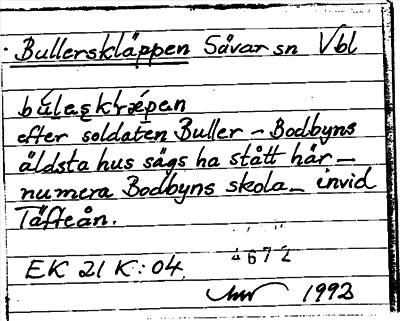 Bullerskläppen Sävar sn Vbl
búlaṣkḷæ̀pan
efter soldaten Buller – Bodbyns
äldsta hus sägs ha stått här –
numera Bodbyns skola – invid
Täfteån.
4672
EK 21 K:04
1992